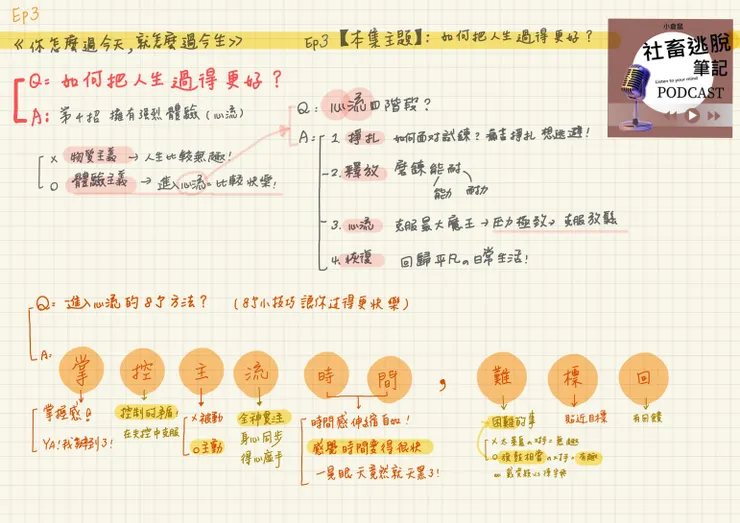 Ep3
《你怎麼過今天,就怎麼過今生》
Q: 如何把人生過得更好?
A: 第4招 擁有強烈體驗(心流)
× 物質主義 → 人生比較無趣!
○ 體驗主義 → 進入心流=比較快樂!
Ep3【本集主題】: 如何把人生過得更好?
小倉鼠
社畜逃脫
筆記
Listen to your mind
PODCAST
Q: 心流四階段?
A:
1. 掙扎 如何面對試煉?痛苦掙扎 想逃避!
2. 釋放 磨鍊能耐
能力 耐力
3. 心流 克服最大魔王→壓力極致→克服放鬆
4. 恢復 回歸平凡の日常生活!
Q: 進入心流的8個方法? (8個小技巧讓你过得更快樂)
A:
掌 控 主 流 時 間 , 難 標 回
掌握感!
YA!我辦到了!
控制的矛盾!
在失控中克服
×被動
○主動
全神貫注
身心同步
得心應手
時間感伸縮自如!
感覺時間變得很快
一晃眼天竟然就天黑了!
困難的事
× 不 の対手=無趣
○ 旗鼓相當の対手=有趣
貼近目標
有回饋